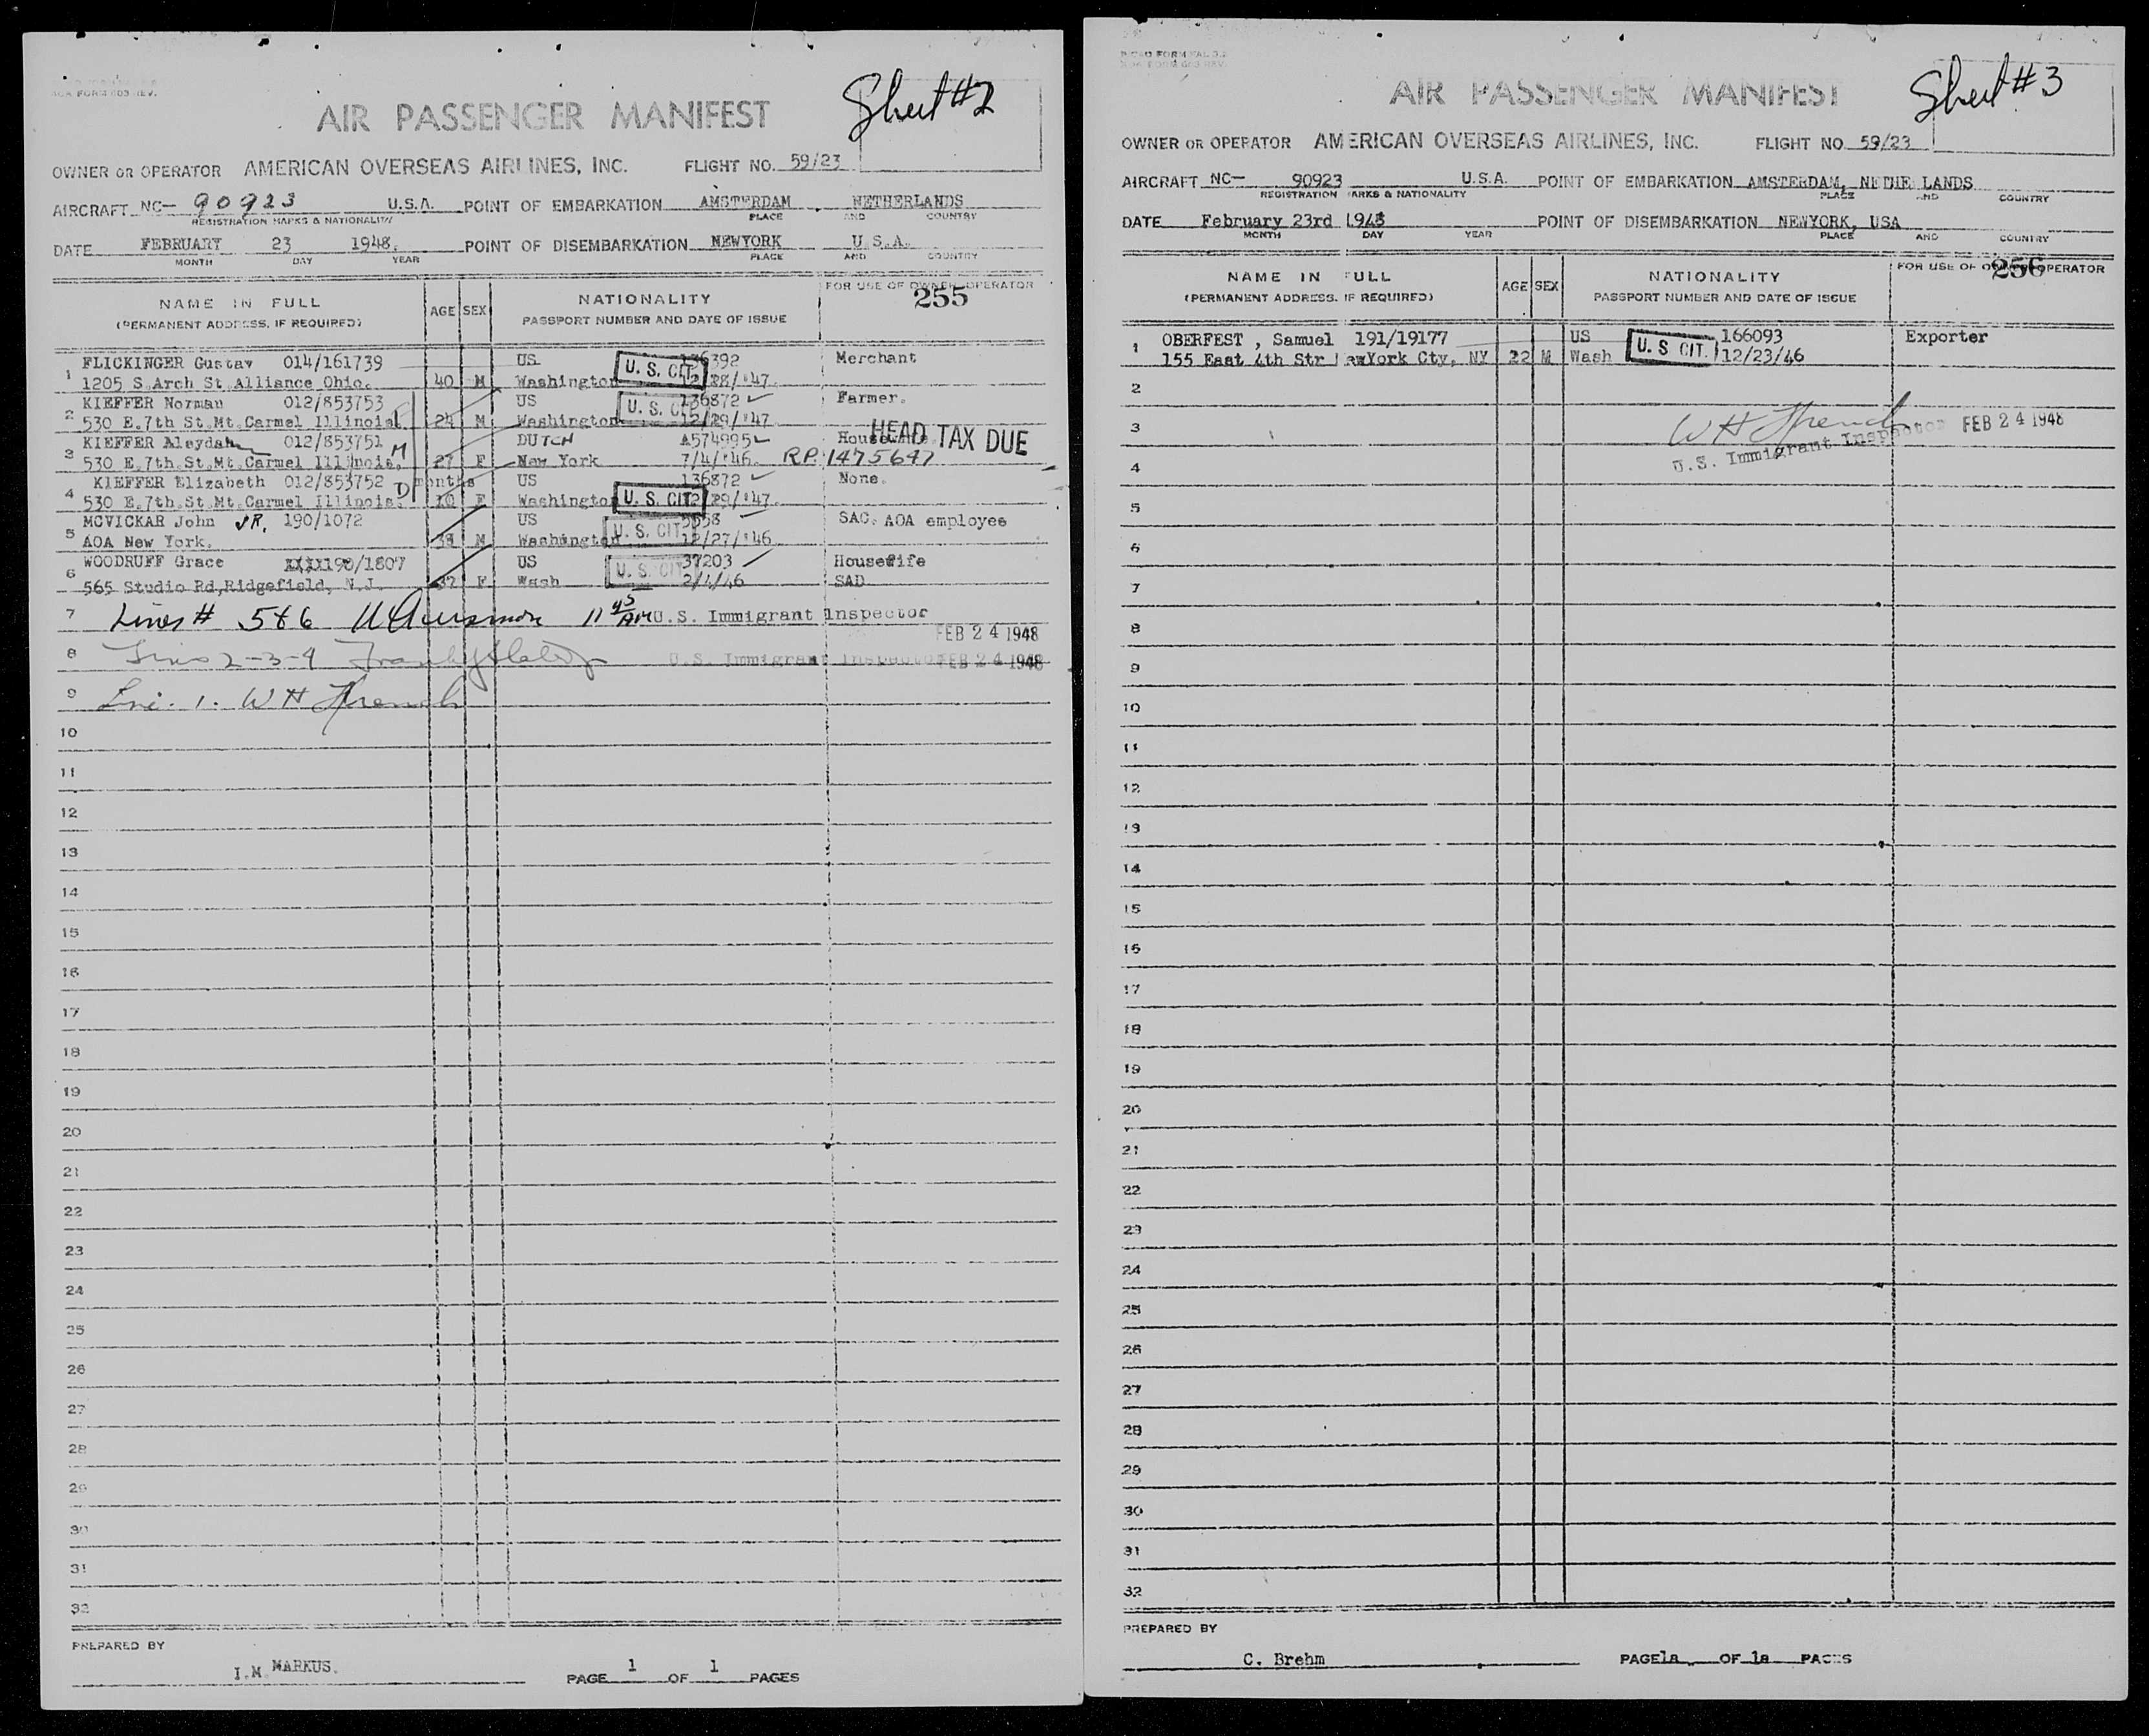 ACA FORM 603 REV.
Sheet #2
AIR PASSENGER MANIFEST
OWNER OR OPERATOR AMERICAN OVERSEAS AIRLINES, INC. FLIGHT NO. 59/23
AIRCRAFT NC- 90923 U.S.A. POINT OF EMBARKATION AMSTERDAM, NETHERLANDS
REGISTRATION MARKS & NATIONALITY PLACE AND COUNTRY
DATE FEBRUARY 23 1948. POINT OF DISEMBARKATION NEWYORK U.S.A.
MONTH DAY YEAR PLACE AND COUNTRY
NAME IN FULL AGE SEX NATIONALITY FOR USE OF OWNER OPERATOR
(PERMANENT ADDRESS, IF REQUIRED) PASSPORT NUMBER AND DATE OF ISSUE 255
1 FLICKINGER Gustav 014/161739 US U. S. CIT. Merchant
1205 S Arch St Alliance Ohio. 40 M Washington
2 KIEFFER Norman 012/853753 US U. S. CIT 136872 Farmer.
530 E.7th St.Mt.Carmel Illinois. 24 M Washington 12/29/'47
3 KIEFFER Aleydah 012/853751 M DUTCH A574995 Housewife HEAD TAX DUE
530 E.7th.St.Mt.Carmel Illinois. 27 F New York 7/4/'46. RP.1475647
4 KIEFFER Elizabeth 012/853752 D months US 136872 None.
530 E.7th.St Mt.Carmel Illinois. 10 F Washington U. S. CIT 12/29/'47
5 MCVICKAR John JR. 190/1072 US U. S. CIT SAC. AOA employee
AOA New York. M Washington 12/27/'46
6 WOODRUFF Grace 190/1807 US U. S. CIT 37203 Housewife
565 Studio Rd,Ridgefield, N.J. 37 F Wash SAD
7 Lines # 5&6 11 45 AM U.S. Immigrant Inspector
FEB 24 1948
8 Lines 2-3-4 U.S. Immigrant Inspector FEB 24 1948
9 Line. 1. W H French
10
11
12
13
14
15
16
17
18
19
20
21
22
23
24
25
26
27
28
29
30
31
32
PREPARED BY
I.M. MARKUS.
PAGE 1 OF 1 PAGES
Sheet #3
AIR PASSENGER MANIFEST
OWNER OR OPERATOR AMERICAN OVERSEAS AIRLINES, INC. FLIGHT NO 59/23
AIRCRAFT NC- 90923 U.S.A. POINT OF EMBARKATION AMSTERDAM, NETHE LANDS
REGISTRATION MARKS & NATIONALITY PLACE AND COUNTRY
DATE February 23rd 1948 POINT OF DISEMBARKATION NEWYORK, USA
MONTH DAY YEAR PLACE AND COUNTRY
NAME IN FULL AGE SEX NATIONALITY FOR USE OF OWNER OPERATOR
(PERMANENT ADDRESS, IF REQUIRED) PASSPORT NUMBER AND DATE OF ISSUE 256
1 OBERFEST , Samuel 191/19177 US U. S CIT. 166093 Exporter
155 East 4th Str NewYork Cty, NY 22 M Wash 12/23/46
2
3 W H French FEB 24 1948
4 U.S. Immigrant Inspector
5
6
7
8
9
10
11
12
13
14
15
16
17
18
19
20
21
22
23
24
25
26
27
28
29
30
31
32
PREPARED BY
C. Brehm
PAGE 1a OF 1a PAGES